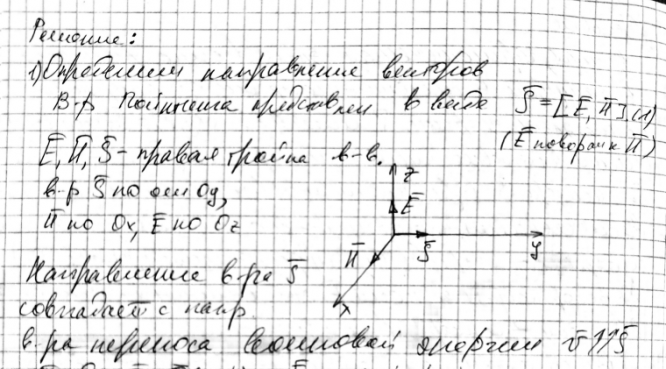 Решение:
1) Определим направление векторов
В-р Пойнтинга представлен в виде S̄ = [Ē, H̄] (1)
(Ē поворот к H̄)
Ē, H̄, S̄ - правая тройка в-в.
в-р S̄ по оси Oy,
H̄ по Ox, Ē по Oz
z
Ē
H̄
S̄
y
x
Направление в-ра S̄
совпадает с напр.
в-ра переноса волновой энергии v̄ ↑↑ S̄